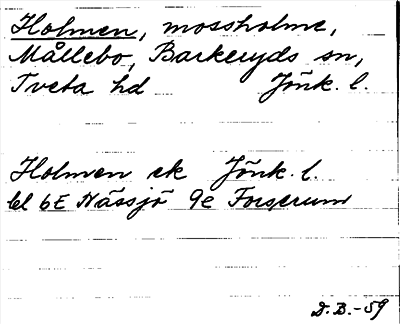 Holmen, mossholme,
Mållebo, Barkeryds sn,
Tveta hd Jönk. l.
Holmen ek Jönk. l.
bl 6E Nässjö 9e Forserum
D.B.-59